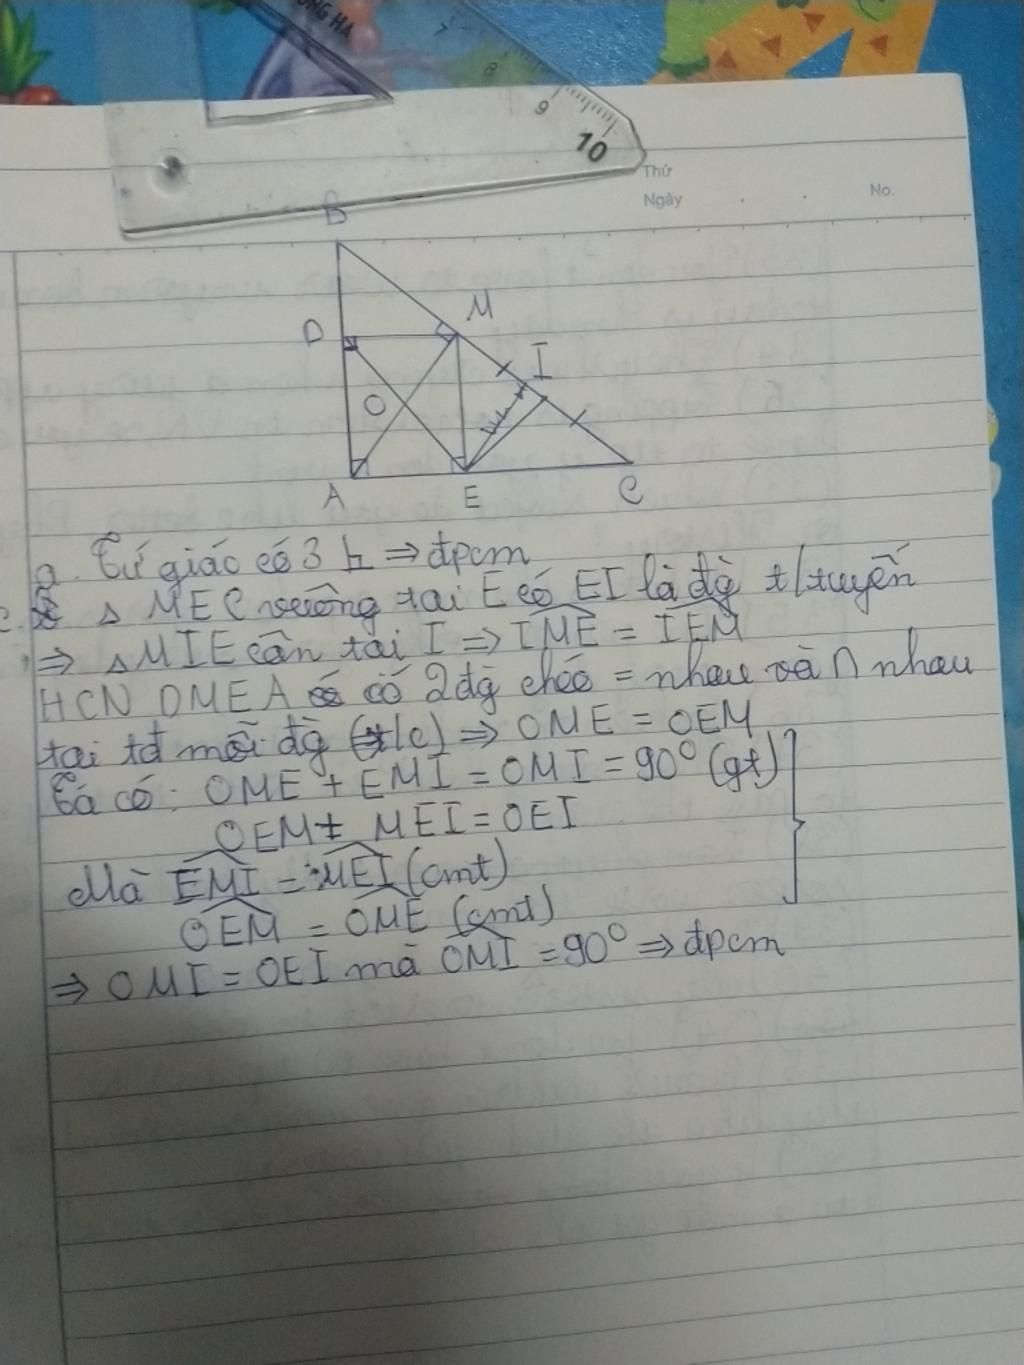 7
8
9
10
Thứ
Ngày
No.
B
D
M
I
O
A
E
C
a. Tứ giác có 3 ⊾ ⇒ đpcm
c. △ MEC vuông tại E có EI là đg t/tuyến
⇒ △MIE cân tại I ⇒ IME = IEM
HCN DMEA có 2 đg chéo = nhau và ∩ nhau
tại tđ mỗi đg (t/c) ⇒ OME = OEM
Ta có: OME + EMI = OMI = 90° (gt)
OEM + MEI = OEI
Mà EMI = MEI (cmt)
OEM = OME (cmt)
⇒ OMI = OEI mà OMI = 90° ⇒ đpcm